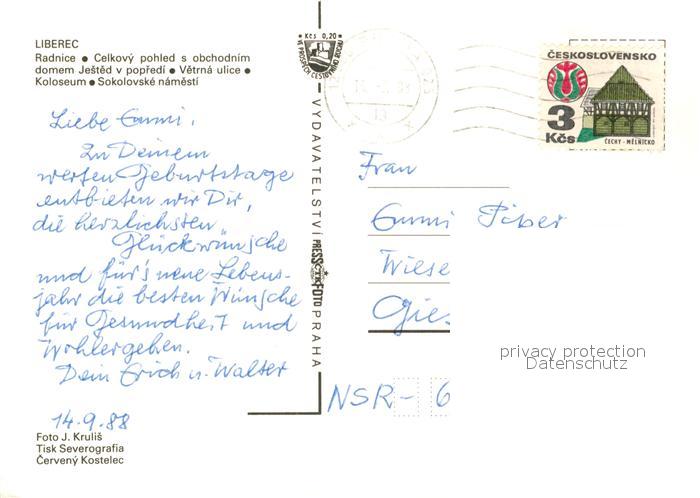 LIBEREC
Radnice • Celkový pohled s obchodním
domem Ještěd v popředí • Větrná ulice •
Koloseum • Sokolovské náměstí
Liebe Emmi,
Zu Deinem
werten Geburtstage
entbieten wir Dir,
die herzlichsten
Glückwünsche
und für's neue Lebens-
jahr die besten Wünsche
für Gesundheit und
Wohlergehen.
Dein Erich u. Walter
14.9.88
Foto J. Kruliš
Tisk Severografia
Červený Kostelec
Kčs 0,20
VE PROSPĚCH CESTOVNÍHO RUCHU
VYDAVATELSTVÍ PRESSFOTO PRAHA
ČESKOSLOVENSKO
3
Kčs
ČECHY - MĚLNICKO
Frau
Emmi Piber
Wiese
Gies
NSR - 6
privacy protection
Datenschutz